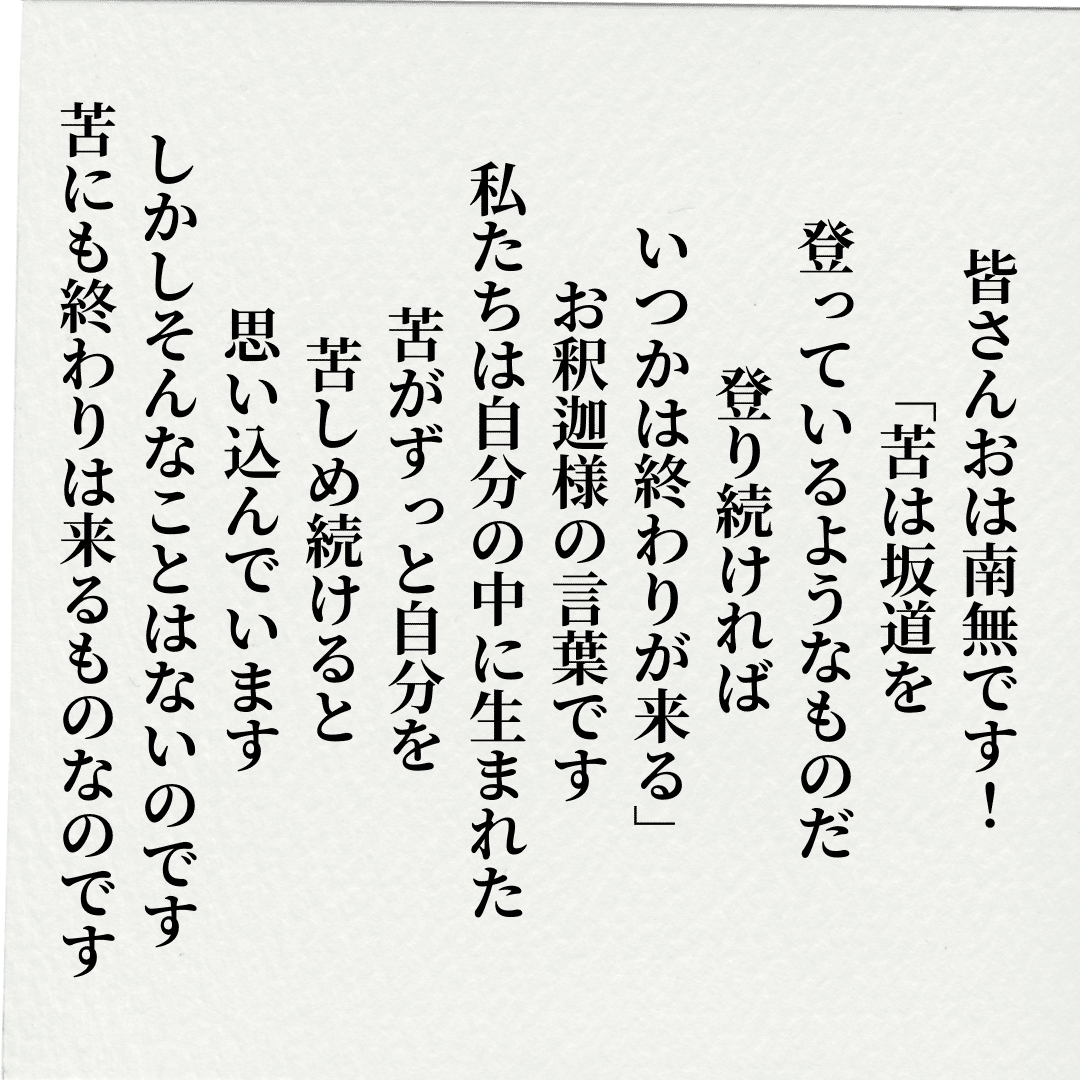 皆さんおは南無です！
「苦は坂道を
登っているようなものだ
登り続ければ
いつかは終わりが来る」
お釈迦様の言葉です
私たちは自分の中に生まれた
苦がずっと自分を
苦しめ続けると
思い込んでいます
しかしそんなことはないのです
苦にも終わりは来るものなのです